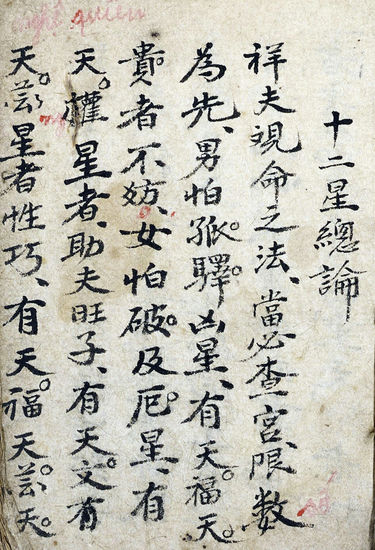 十二星總論
祥夫視命之法、當必查宮、限數
為先、男怕孤。驛。凶星、有天。福。天。
貴。者不妨、女怕破。及厄。星、有
天。權星者、助夫旺子、有天。文。有
天。芸。星者性巧、有天。福。天。芸。天。